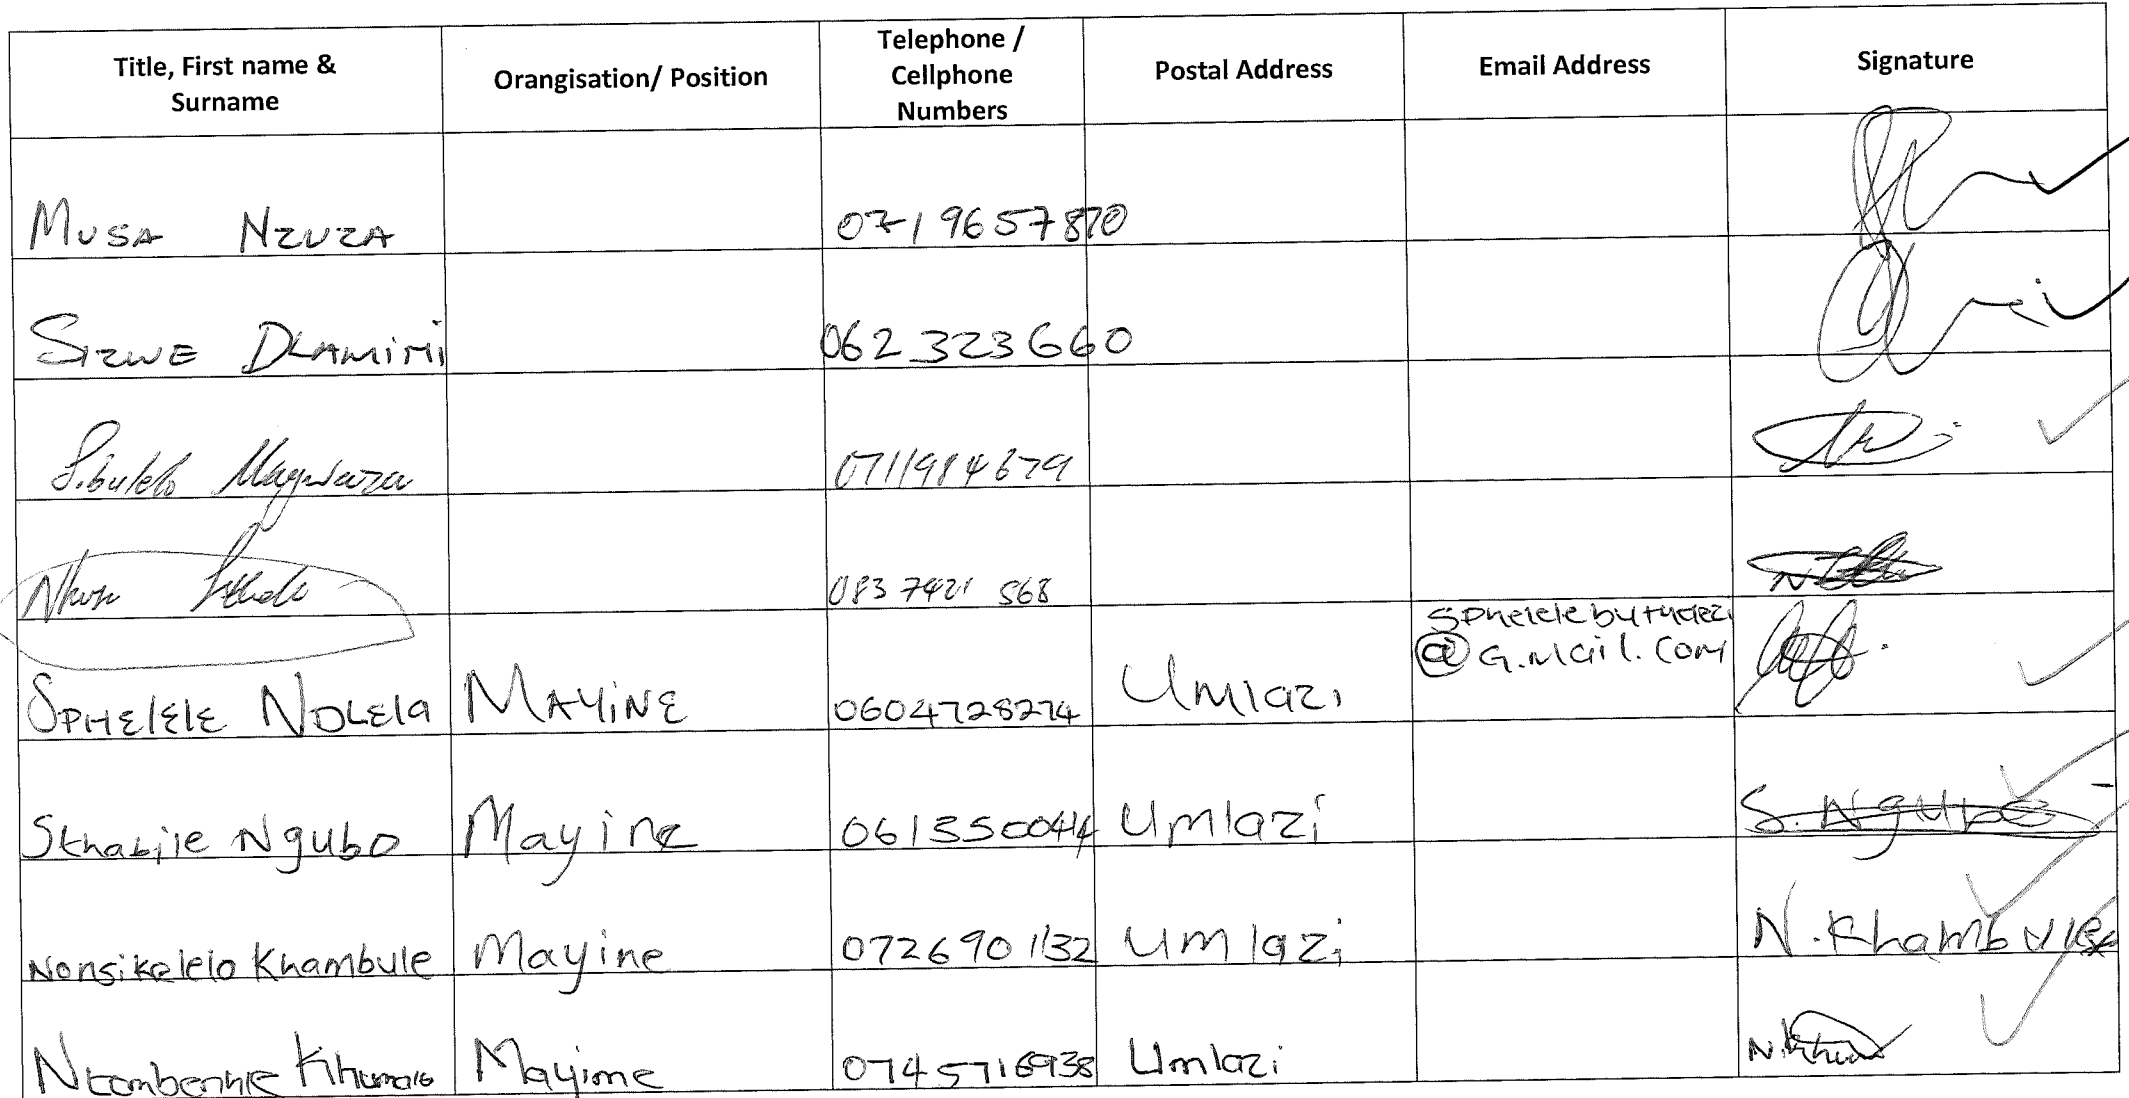 Title, First name & Surname | Orangisation/ Position | Telephone / Cellphone Numbers | Postal Address | Email Address | Signature
MUSA NZUZA | 071 9657870
SIZWE DLAMINI | 062 323660
Sibulelo Magwaza | 0711984679
083 7421 568
SPHElELE NDLEla | MAYiNE | 0604728274 | Umlazi | Sphelelebuthelezi @G.Mail.Com
Sthabile Ngubo | Mayine | 0613550044 | Umlazi | S. Ngubo
Nonsikelelo Khambule | Mayine | 0726901132 | Umlazi | N. Khambule
Ntombenhle Khumalo | Mayime | 0745716938 | Umlazi